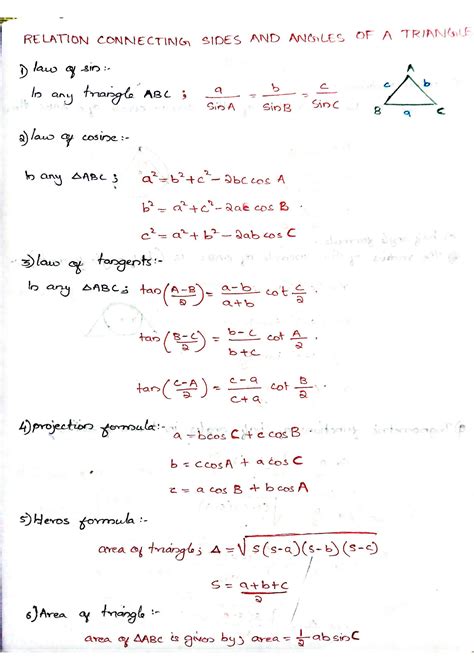 RELATION CONNECTING SIDES AND ANGLES OF A TRIANGLE
1) law of sin:-
In any triangle ABC ; a/SinA = b/SinB = c/SinC
A
c b
B a C
2) law of cosine:-
In any ΔABC ; a² = b² + c² - 2bc cos A
b² = a² + c² - 2ac cos B
c² = a² + b² - 2ab cos C
3) law of tangents:-
In any ΔABC ; tan((A-B)/2) = (a-b)/(a+b) cot C/2
tan((B-C)/2) = (b-c)/(b+c) cot A/2
tan((C-A)/2) = (c-a)/(c+a) cot B/2
4) projection formula:-
a = b cos C + c cos B
b = c cos A + a cos C
c = a cos B + b cos A
5) Heros formula :-
area of triangle; Δ = √(S(S-a)(S-b)(S-c))
S = (a+b+c)/2
6) Area of triangle :-
area of ΔABC is given by; area = 1/2 ab sin C